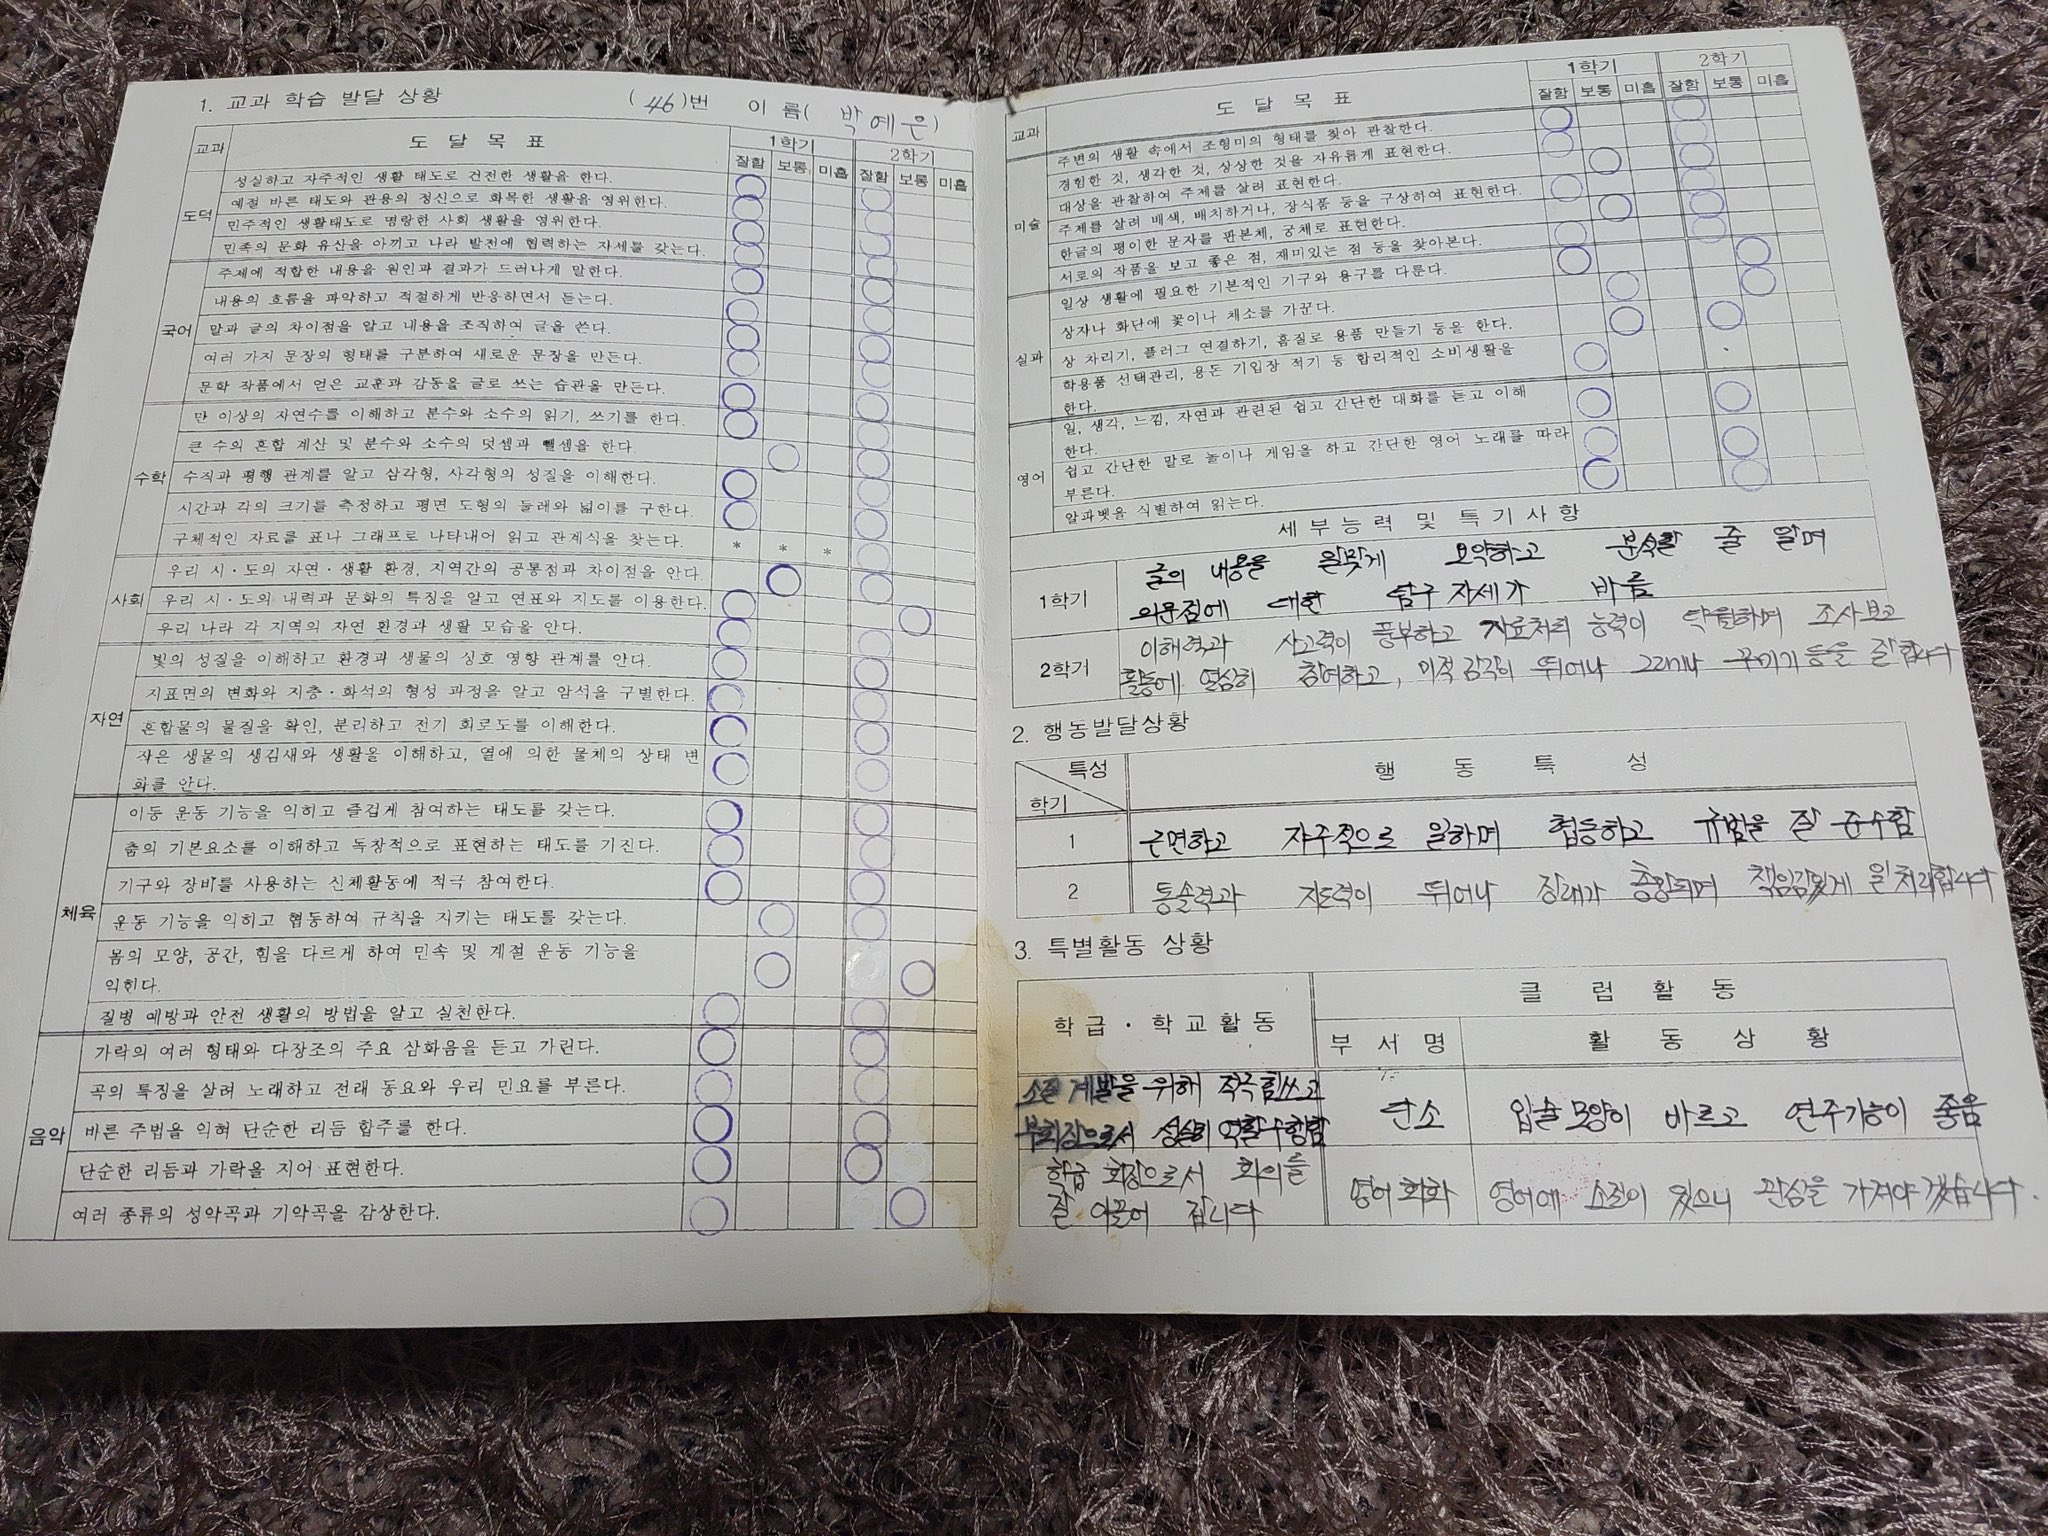 1. 교과 학습 발달 상황 (46)번 이 름( 박예은 )
교과 도 달 목 표 1학기 2학기
잘함 보통 미흡 잘함 보통 미흡
도덕
성실하고 자주적인 생활 태도로 건전한 생활을 한다.
예절 바른 태도와 관용의 정신으로 화목한 생활을 영위한다.
민주적인 생활태도로 명랑한 사회 생활을 영위한다.
민족의 문화 유산을 아끼고 나라 발전에 협력하는 자세를 갖는다.
국어
주제에 적합한 내용을 원인과 결과가 드러나게 말한다.
내용의 흐름을 파악하고 적절하게 반응하면서 듣는다.
말과 글의 차이점을 알고 내용을 조직하여 글을 쓴다.
여러 가지 문장의 형태를 구분하여 새로운 문장을 만든다.
문학 작품에서 얻은 교훈과 감동을 글로 쓰는 습관을 만든다.
수학
만 이상의 자연수를 이해하고 분수와 소수의 읽기, 쓰기를 한다.
큰 수의 혼합 계산 및 분수와 소수의 덧셈과 뺄셈을 한다.
수직과 평행 관계를 알고 삼각형, 사각형의 성질을 이해한다.
시간과 각의 크기를 측정하고 평면 도형의 둘레와 넓이를 구한다.
구체적인 자료를 표나 그래프로 나타내어 읽고 관계식을 찾는다. * * *
사회
우리 시·도의 자연·생활 환경, 지역간의 공통점과 차이점을 안다.
우리 시·도의 내력과 문화의 특징을 알고 연표와 지도를 이용한다.
우리 나라 각 지역의 자연 환경과 생활 모습을 안다.
자연
빛의 성질을 이해하고 환경과 생물의 상호 영향 관계를 안다.
지표면의 변화와 지층·화석의 형성 과정을 알고 암석을 구별한다.
혼합물의 물질을 확인, 분리하고 전기 회로도를 이해한다.
작은 생물의 생김새와 생활을 이해하고, 열에 의한 물체의 상태 변
화를 안다.
체육
이동 운동 기능을 익히고 즐겁게 참여하는 태도를 갖는다.
춤의 기본요소를 이해하고 독창적으로 표현하는 태도를 기진다.
기구와 장비를 사용하는 신체활동에 적극 참여한다.
운동 기능을 익히고 협동하여 규칙을 지키는 태도를 갖는다.
몸의 모양, 공간, 힘을 다르게 하여 민속 및 계절 운동 기능을
익힌다.
질병 예방과 안전 생활의 방법을 알고 실천한다.
음악
가락의 여러 형태와 다장조의 주요 삼화음을 듣고 가린다.
곡의 특징을 살려 노래하고 전래 동요와 우리 민요를 부른다.
바른 주법을 익혀 단순한 리듬 합주를 한다.
단순한 리듬과 가락을 지어 표현한다.
여러 종류의 성악곡과 기악곡을 감상한다.
교과 도 달 목 표 1학기 2학기
잘함 보통 미흡 잘함 보통 미흡
미술
주변의 생활 속에서 조형미의 형태를 찾아 관찰한다.
경험한 것, 생각한 것, 상상한 것을 자유롭게 표현한다.
대상을 관찰하여 주제를 살려 표현한다.
주제를 살려 배색, 배치하거나, 장식품 등을 구상하여 표현한다.
한글의 평이한 문자를 판본체, 궁체로 표현한다.
서로의 작품을 보고 좋은 점, 재미있는 점 등을 찾아본다.
실과
일상 생활에 필요한 기본적인 기구와 용구를 다룬다.
상자나 화단에 꽃이나 채소를 가꾼다.
상 차리기, 플러그 연결하기, 흙질로 용품 만들기 등을 한다.
학용품 선택관리, 용돈 기입장 적기 등 합리적인 소비생활을
한다.
영어
일, 생각, 느낌, 자연과 관련된 쉽고 간단한 대화를 듣고 이해
한다.
쉽고 간단한 말로 놀이나 게임을 하고 간단한 영어 노래를 따라
부른다.
알파벳을 식별하여 읽는다.
세 부 능 력 및 특 기 사 항
1학기
글의 내용을 알맞게 요약하고 분석할 줄 알며
의문점에 대한 탐구 자세가 바름
2학기
이해력과 사고력이 풍부하고 자료처리 능력이 탁월하며 조사보고
활동에 열심히 참여하고, 미적 감각이 뛰어나 그리기나 꾸미기 등을 잘합니다
2. 행동발달상황
특성 행 동 특 성
학기
1 근면하고 자주적으로 일하며 협동하고 규범을 잘 준수함
2 통솔력과 지도력이 뛰어나 장래가 촉망되며 책임감있게 일처리합니다
3. 특별활동 상황
학급·학교활동 클 럽 활 동
부 서 명 활 동 상 황
소질 계발을 위해 적극 힘쓰고
부회장으로서 성실히 역할수행함
단소 입술모양이 바르고 연주기능이 좋음
학급 회장으로서 회의를
잘 이끌어 갑니다
영어회화 영어에 소질이 있으니 관심을 가져야 겠습니다.